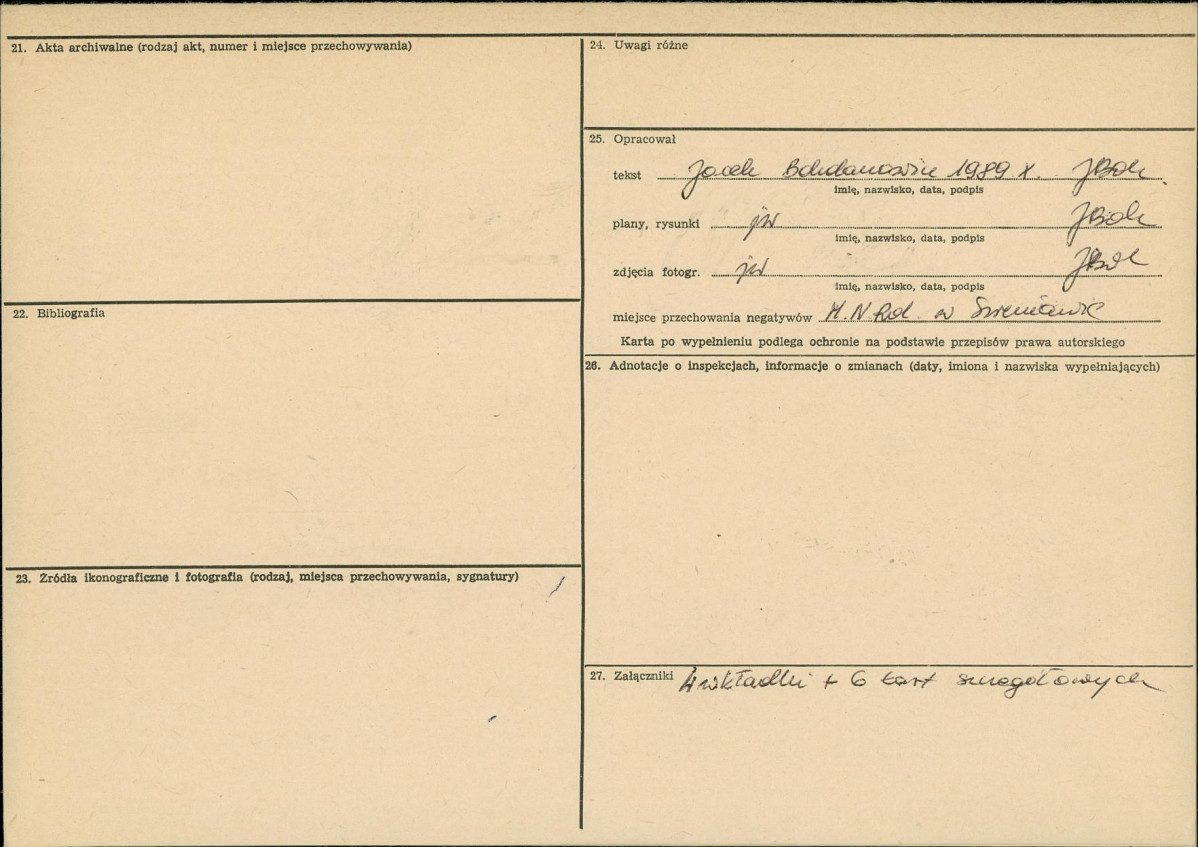 21. Akta archiwalne (rodzaj akt, numer i miejsce przechowywania)
22. Bibliografia
23. Źródła ikonograficzne i fotografia (rodzaj, miejsca przechowywania, sygnatury)
24. Uwagi różne
25. Opracował
tekst Jacek 1989 X.
imię, nazwisko, data, podpis
plany, rysunki jw
imię, nazwisko, data, podpis
zdjęcia fotogr. jw
imię, nazwisko, data, podpis
miejsce przechowania negatywów M.N.Rol. w
Karta po wypełnieniu podlega ochronie na podstawie przepisów prawa autorskiego
26. Adnotacje o inspekcjach, informacje o zmianach (daty, imiona i nazwiska wypełniających)
27. Załączniki 4 wkładki + 6 kart szczegółowych